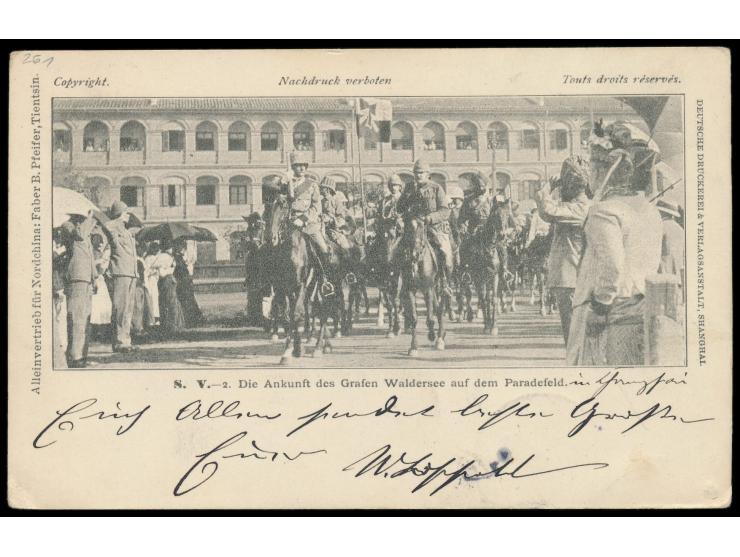 261
Copyright. Nachdruck verboten Touts droits réservés.
Alleinvertrieb für Nordchina: Faber B. Pfeifer, Tientsin.
DEUTSCHE DRUCKEREI & VERLAGSANSTALT, SHANGHAI
S. V.—2. Die Ankunft des Grafen Waldersee auf dem Paradefeld. in Shanghai
Euch Allen sendet beste Grüße
Euer W.